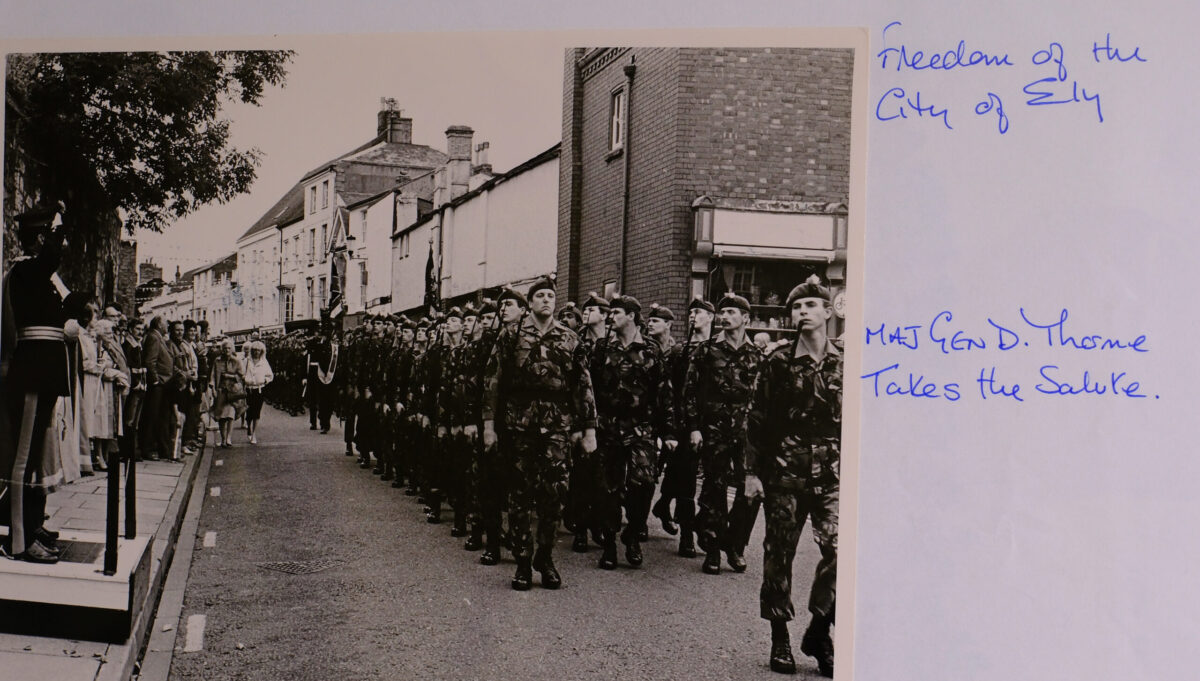 Freedom of the
City of Ely
MAJ GEN D. Thorne
Takes the Salute.